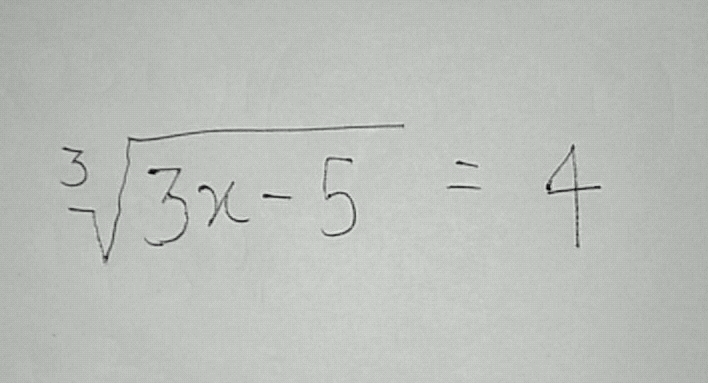 ∛(3x-5) = 4